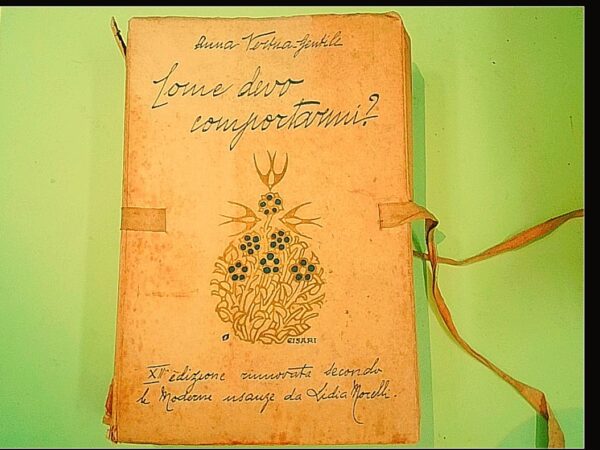 Anna Vertua-Gentile
Come devo
comportarmi?
CISARI
XIV edizione rinnovata secondo
le Moderne usanze da Lidia Morelli.